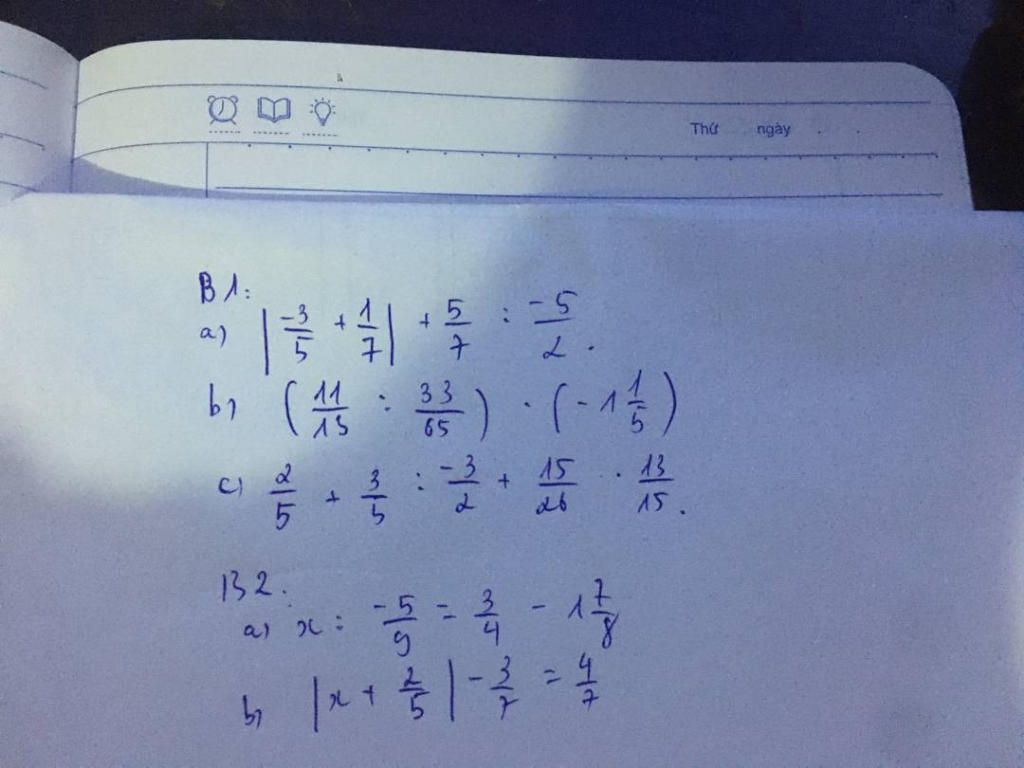 Thứ ngày
B1:
a) |-3/5 + 1/7| + 5/7 : -5/2.
b) (11/13 : 33/65) . (-1 1/5)
c) 2/5 + 3/5 : -3/2 + 15/26 . 13/15.
B2.
a) x : -5/9 = 3/4 - 1 7/8
b) |x + 2/5| - 3/7 = 4/7